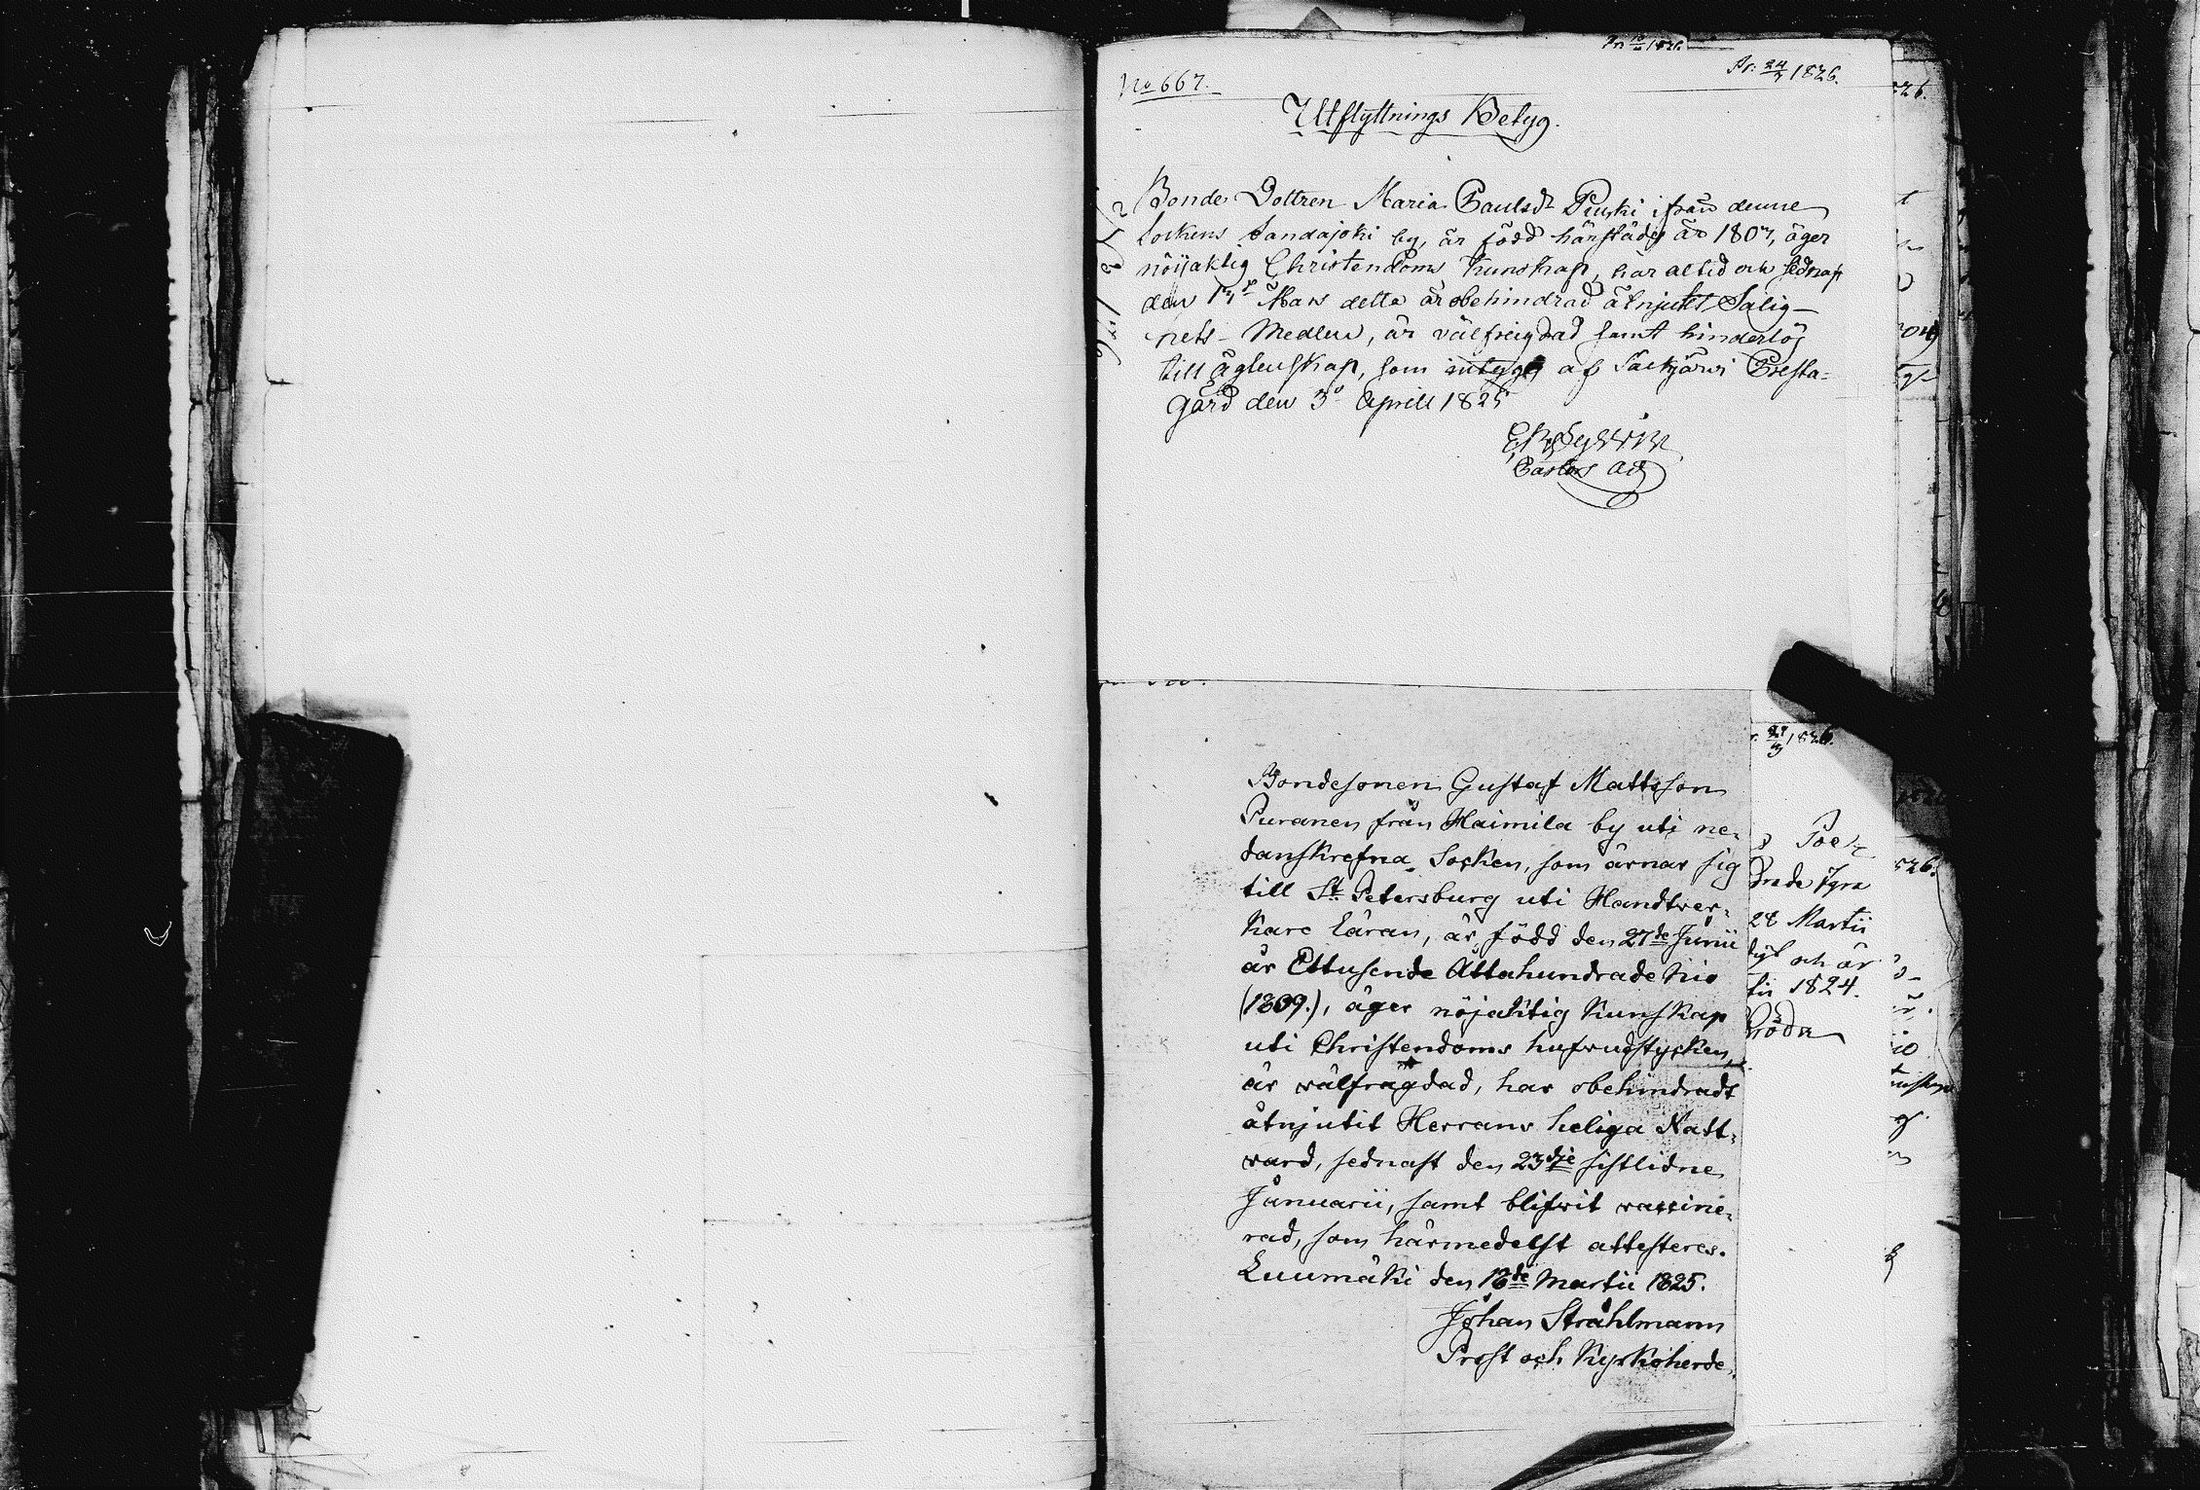 No 667.
Pr: 24/3 1826.
Utflyttnings Betyg.
Bonde Dottren Maria Paulsdr Puski ifrån denne
Sockens Sandajoki by, är född härstädes år 1807, äger
nöijaktig Christendoms Kunskap, har altid och sednast
den 13de Mars detta år obehindrad åtnjutit Salig-
hets Medlen, är välfreigdad samt hinderlös
till ägtenskap, som intygas af Säckjärvi Presta-
gård den 3de Aprill 1825
Pastors adj
Bondesonen Gustaf Mattsson
Puranen från Haimila by uti ne-
danskrefna Socken, som ärnar sig
till St Petersburg uti Handtver-
kare Läran, är född den 27de Junii
år Ettusende Åttahundrade Nio
(1809.), äger nöjaktig Kunskap
uti Christendoms hufvudstycken,
är välfrägdad, har obehindradt
åtnjutit Herrans heliga Natt-
vard, sednast den 23dje sistlidne
Januarii, samt blifvit vaccine-
rad, som härmedelst attesteres.
Luumäki den 18de Martii 1825.
Johan Stråhlmann
Prost och Kyrkoherde.
29/3 1826.
28 Martii
och är
1824.